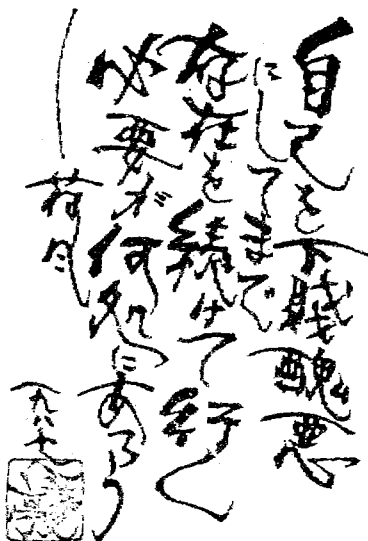 自己を下賤醜悪
にしてまで
存在を続けて行く
必要が何処にあろう